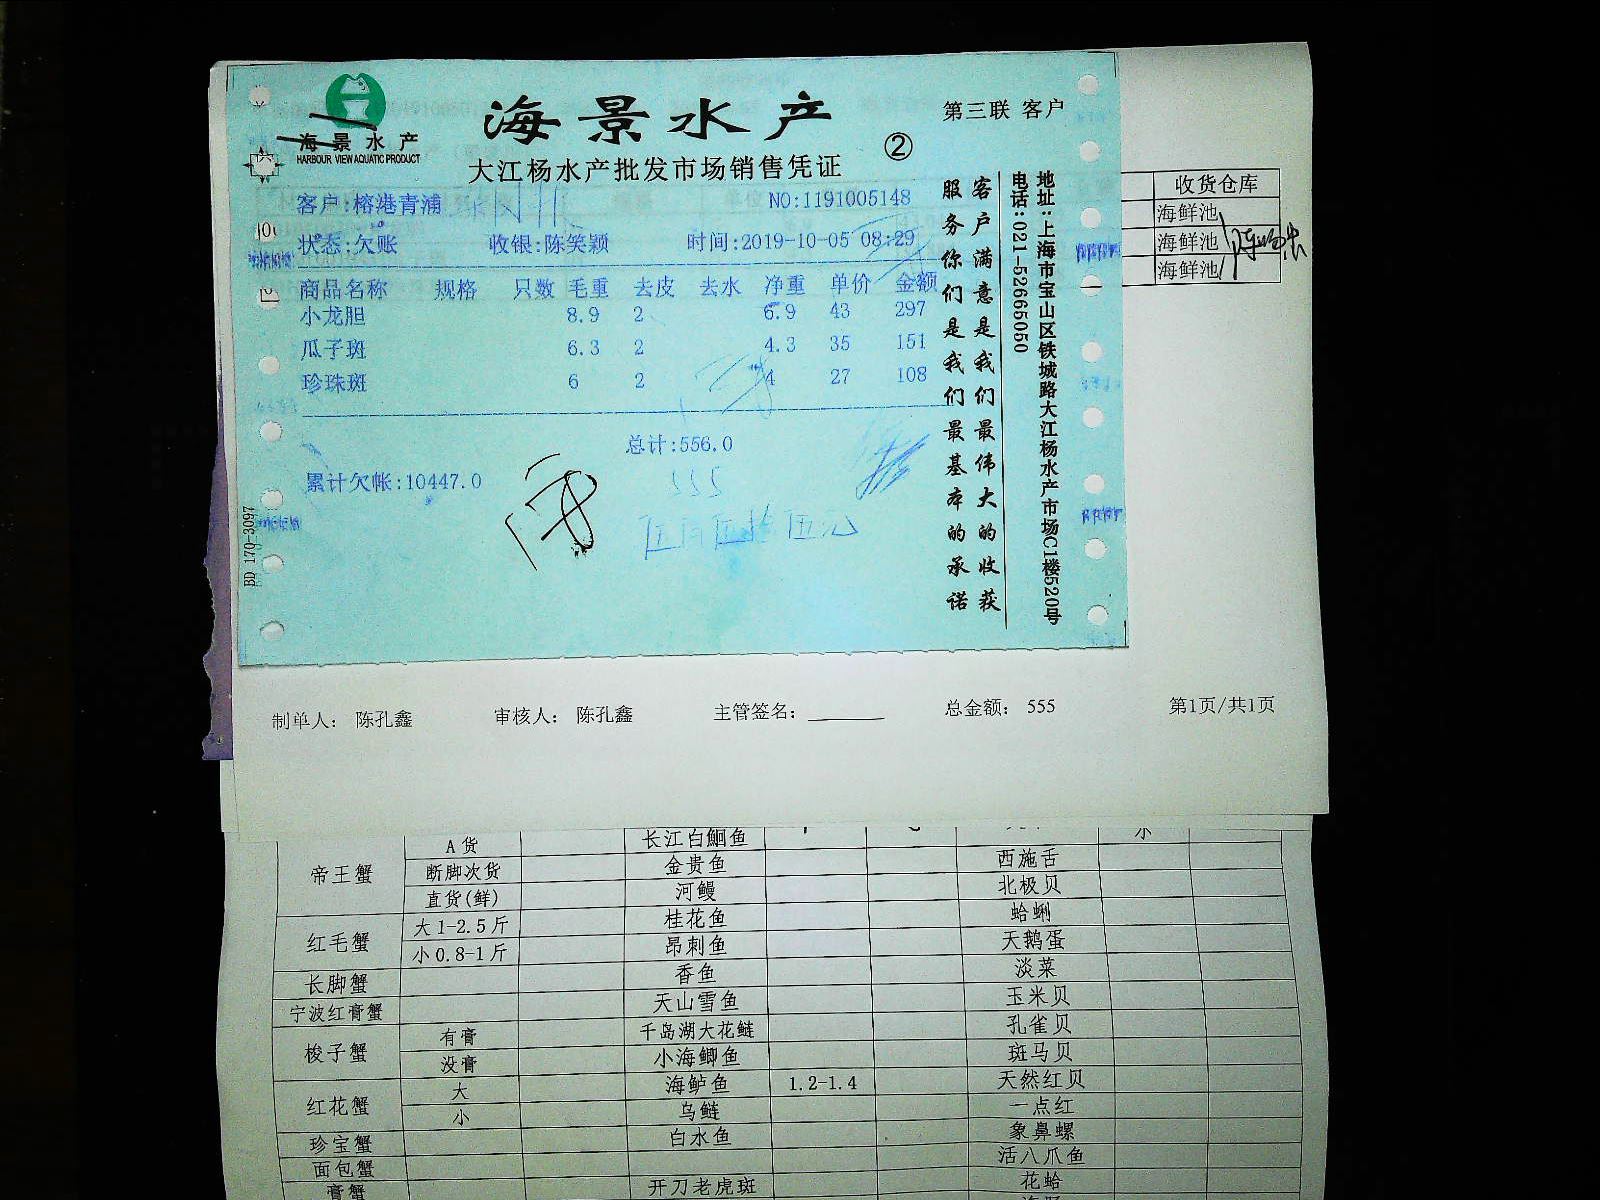 海景水产
HARBOUR VIEW AQUATIC PRODUCT
海景水产
第三联 客户
大江杨水产批发市场销售凭证
②
客户:榕港青浦
NO:1191005148
状态:欠账 收银:陈笑颖 时间:2019-10-05 08:29
商品名称 规格 只数 毛重 去皮 去水 净重 单价 金额
小龙胆 8.9 2 6.9 43 297
瓜子斑 6.3 2 4.3 35 151
珍珠斑 6 2 4 27 108
总计:556.0
累计欠帐:10447.0
555
伍百伍拾伍元
BD 170-3097
客户满意是我们最伟大的收获
服务你们是我们最基本的承诺
地址:上海市宝山区铁城路大江杨水产市场C1楼520号
电话:021-52665050
收货仓库
海鲜池
海鲜池
海鲜池
制单人: 陈孔鑫 审核人: 陈孔鑫 主管签名: 总金额: 555 第1页/共1页
帝王蟹 A货 长江白鮰鱼
断脚次货 金贵鱼 西施舌
直货(鲜) 河鳗 北极贝
红毛蟹 大1-2.5斤 桂花鱼 蛤蜊
小0.8-1斤 昂刺鱼 天鹅蛋
长脚蟹 香鱼 淡菜
宁波红膏蟹 天山雪鱼 玉米贝
梭子蟹 有膏 千岛湖大花鲢 孔雀贝
没膏 小海鲫鱼 斑马贝
红花蟹 大 海鲈鱼 1.2-1.4 天然红贝
小 乌鲢 一点红
珍宝蟹 白水鱼 象鼻螺
面包蟹 活八爪鱼
膏蟹 开刀老虎斑 花蛤